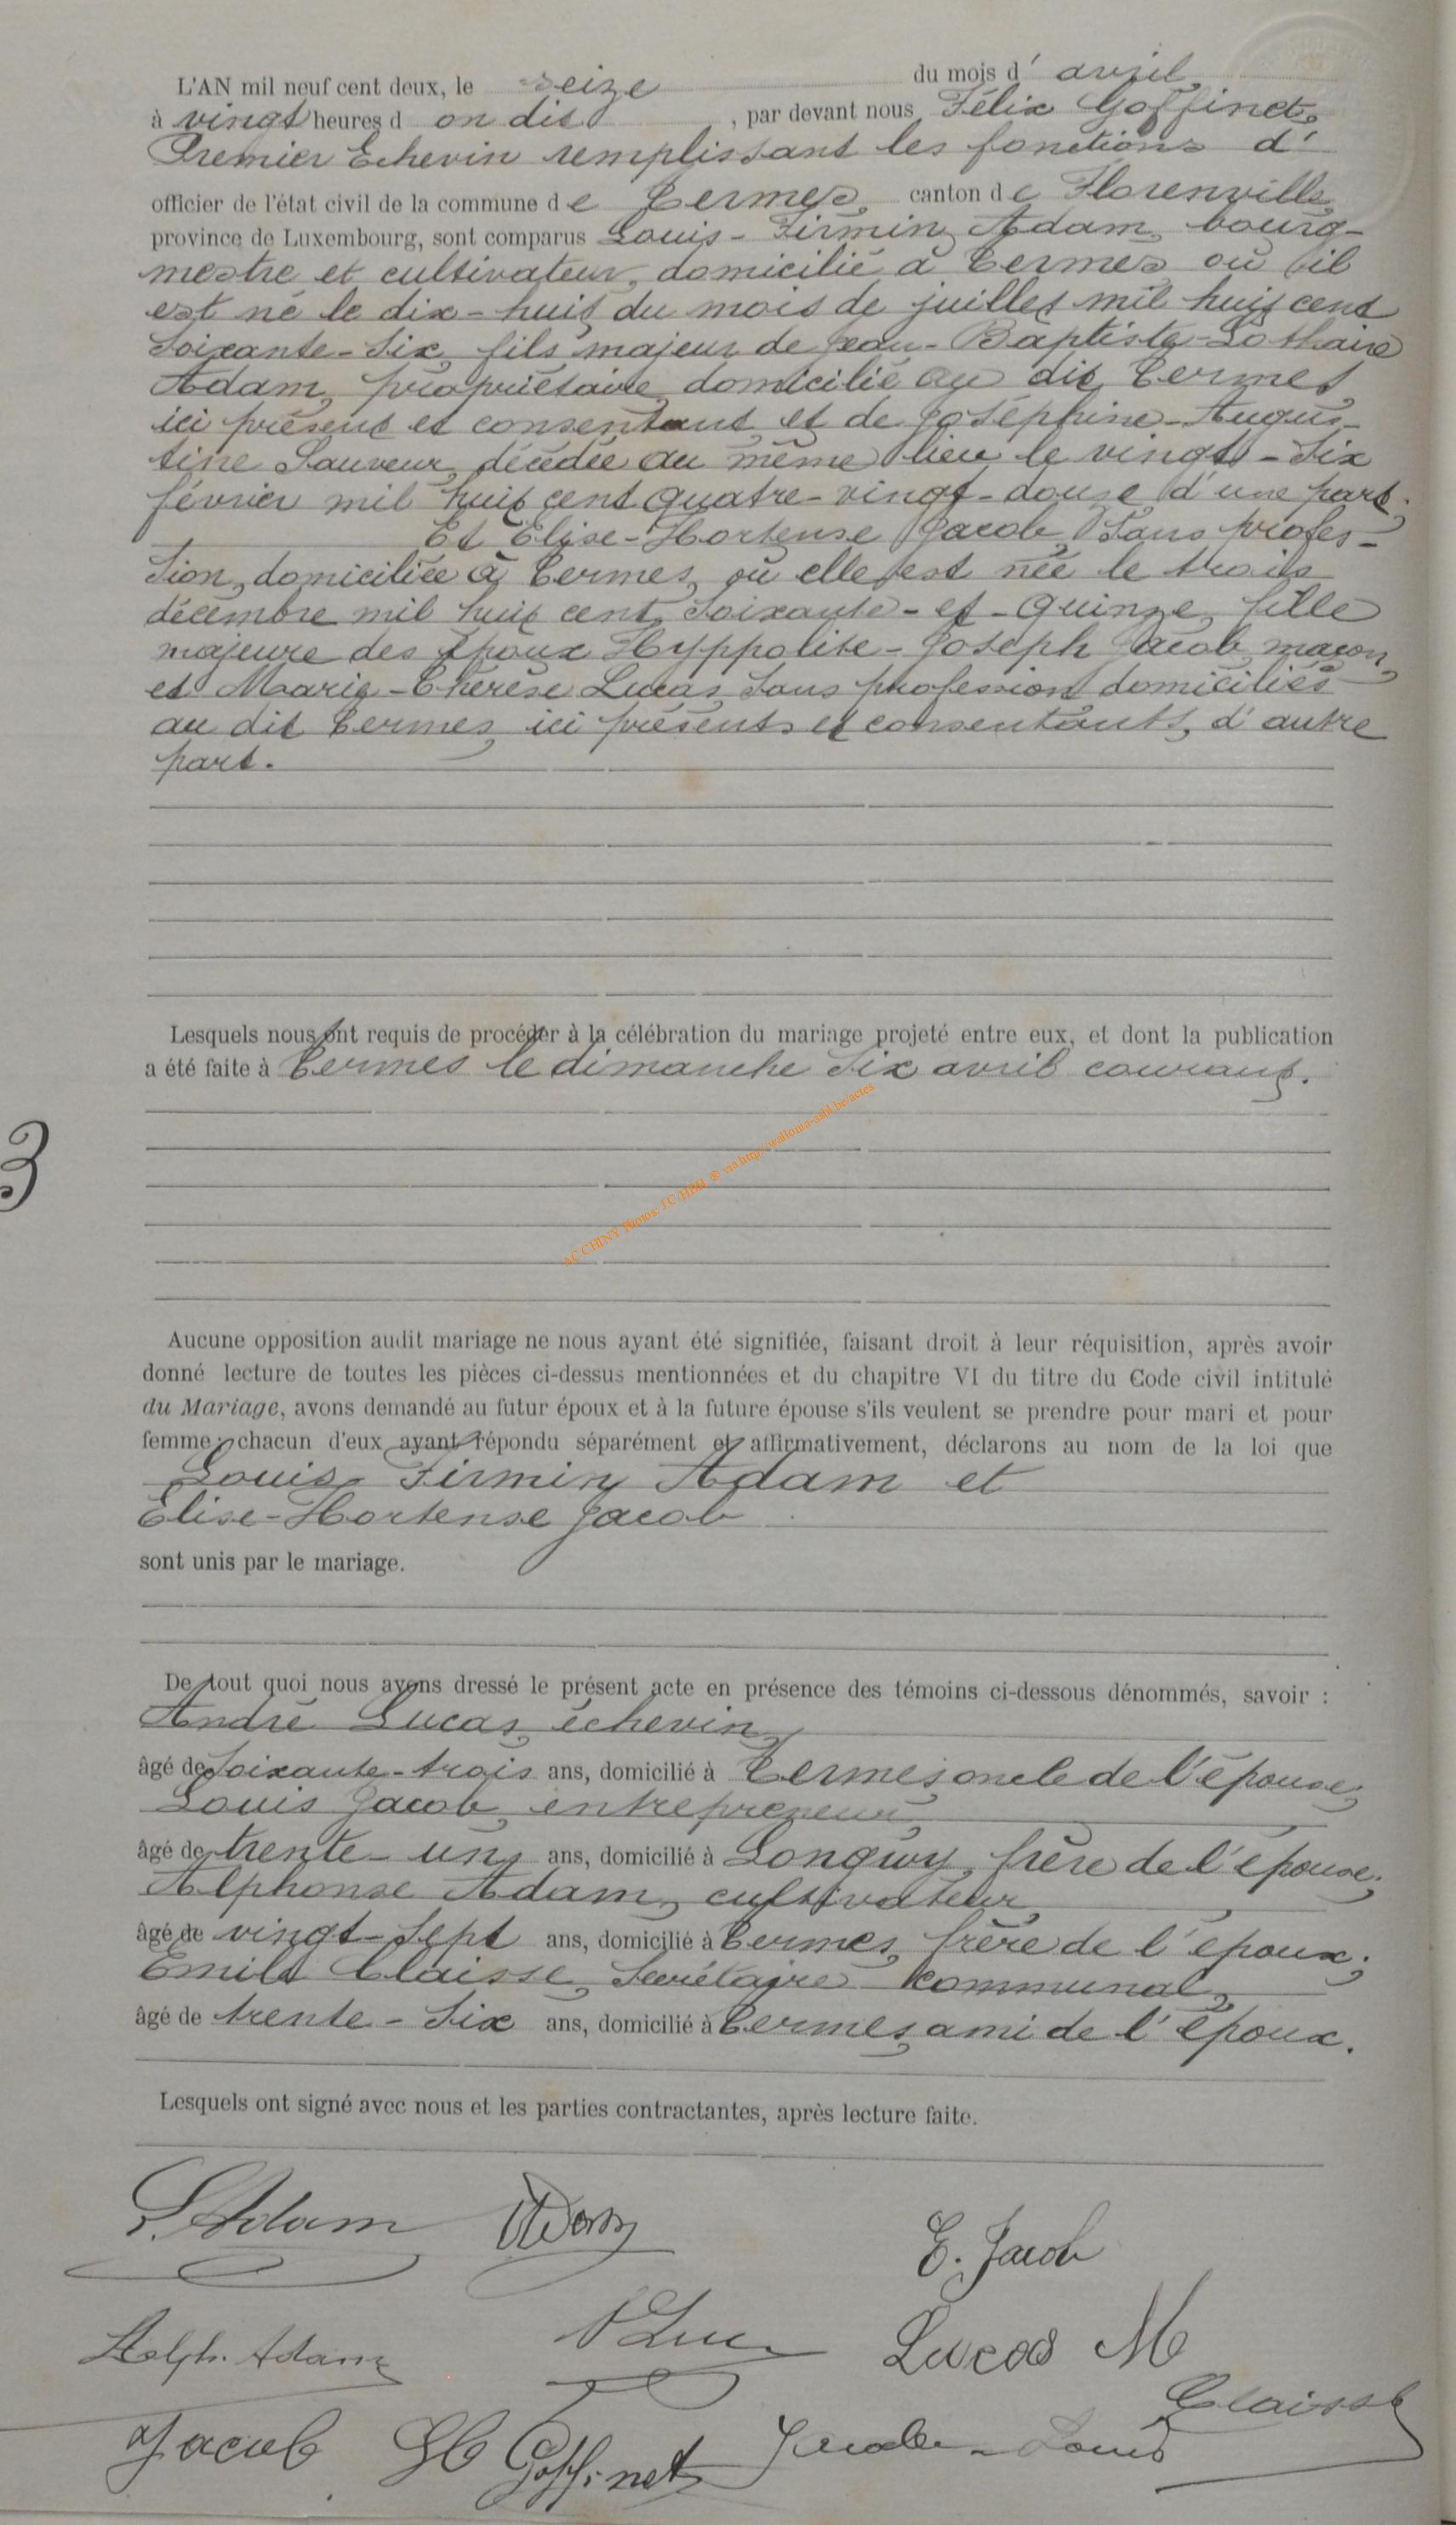 L'AN mil neuf cent deux, le seize du mois d' avril
à vingt heures d on dit, par devant nous, Félix Goffinet,
Premier Echevin remplissant les fonctions d'
officier de l'état civil de la commune d e Termes, canton d e Florenville,
province de Luxembourg, sont comparus Louis-Firmin Adam, bourg-
mestre et cultivateur, domicilié à Termes où il
est né le dix-huit du mois de juillet mil huit cent
soixante-six, fils majeur de Jean-Baptiste-Lothaire
Adam, propriétaire, domicilié au dit Termes,
ici présent et consentant et de Joséphine-Augus-
tine Sauveur, décédée au même lieu le vingt-six
février mil huit cent quatre-vingt-douze d'une part;
Et Elise-Hortense Jacob, sans profes-
sion, domiciliée à Termes, où elle est née le trois
décembre mil huit cent soixante-et-quinze, fille
majeure des époux Hyppolite-Joseph Jacob, maçon,
et Marie-Thérèse Lucas, sans profession domiciliés
au dit Termes, ici présents et consentants, d'autre
part.
Lesquels nous ont requis de procéder à la célébration du mariage projeté entre eux, et dont la publication
a été faite à Termes le dimanche six avril courant.
3
AC CHINY Photos: J.C. HBH. ® via http://wallonia-asbl.be/actes
Aucune opposition audit mariage ne nous ayant été signifiée, faisant droit à leur réquisition, après avoir
donné lecture de toutes les pièces ci-dessus mentionnées et du chapitre VI du titre du Code civil intitulé
du Mariage, avons demandé au futur époux et à la future épouse s'ils veulent se prendre pour mari et pour
femme; chacun d'eux ayant répondu séparément et affirmativement, déclarons au nom de la loi que
Louis-Firmin Adam et
Elise-Hortense Jacob
sont unis par le mariage.
De tout quoi nous avons dressé le présent acte en présence des témoins ci-dessous dénommés, savoir :
André Lucas, échevin,
âgé de soixante-trois ans, domicilié à Termes, oncle de l'épouse;
Louis Jacob, entrepreneur,
âgé de trente-un, ans, domicilié à Longwy, frère de l'épouse;
Alphonse Adam, cultivateur,
âgé de vingt-sept ans, domicilié à Termes, frère de l'époux;
Emile Claisse, Secrétaire communal,
âgé de trente-six ans, domicilié à Termes, ami de l'époux.
Lesquels ont signé avec nous et les parties contractantes, après lecture faite.
L. Adam E. Jacob
Alph. Adam Lucas M
Claisse
Jacob Goffinet Jacob-Louis